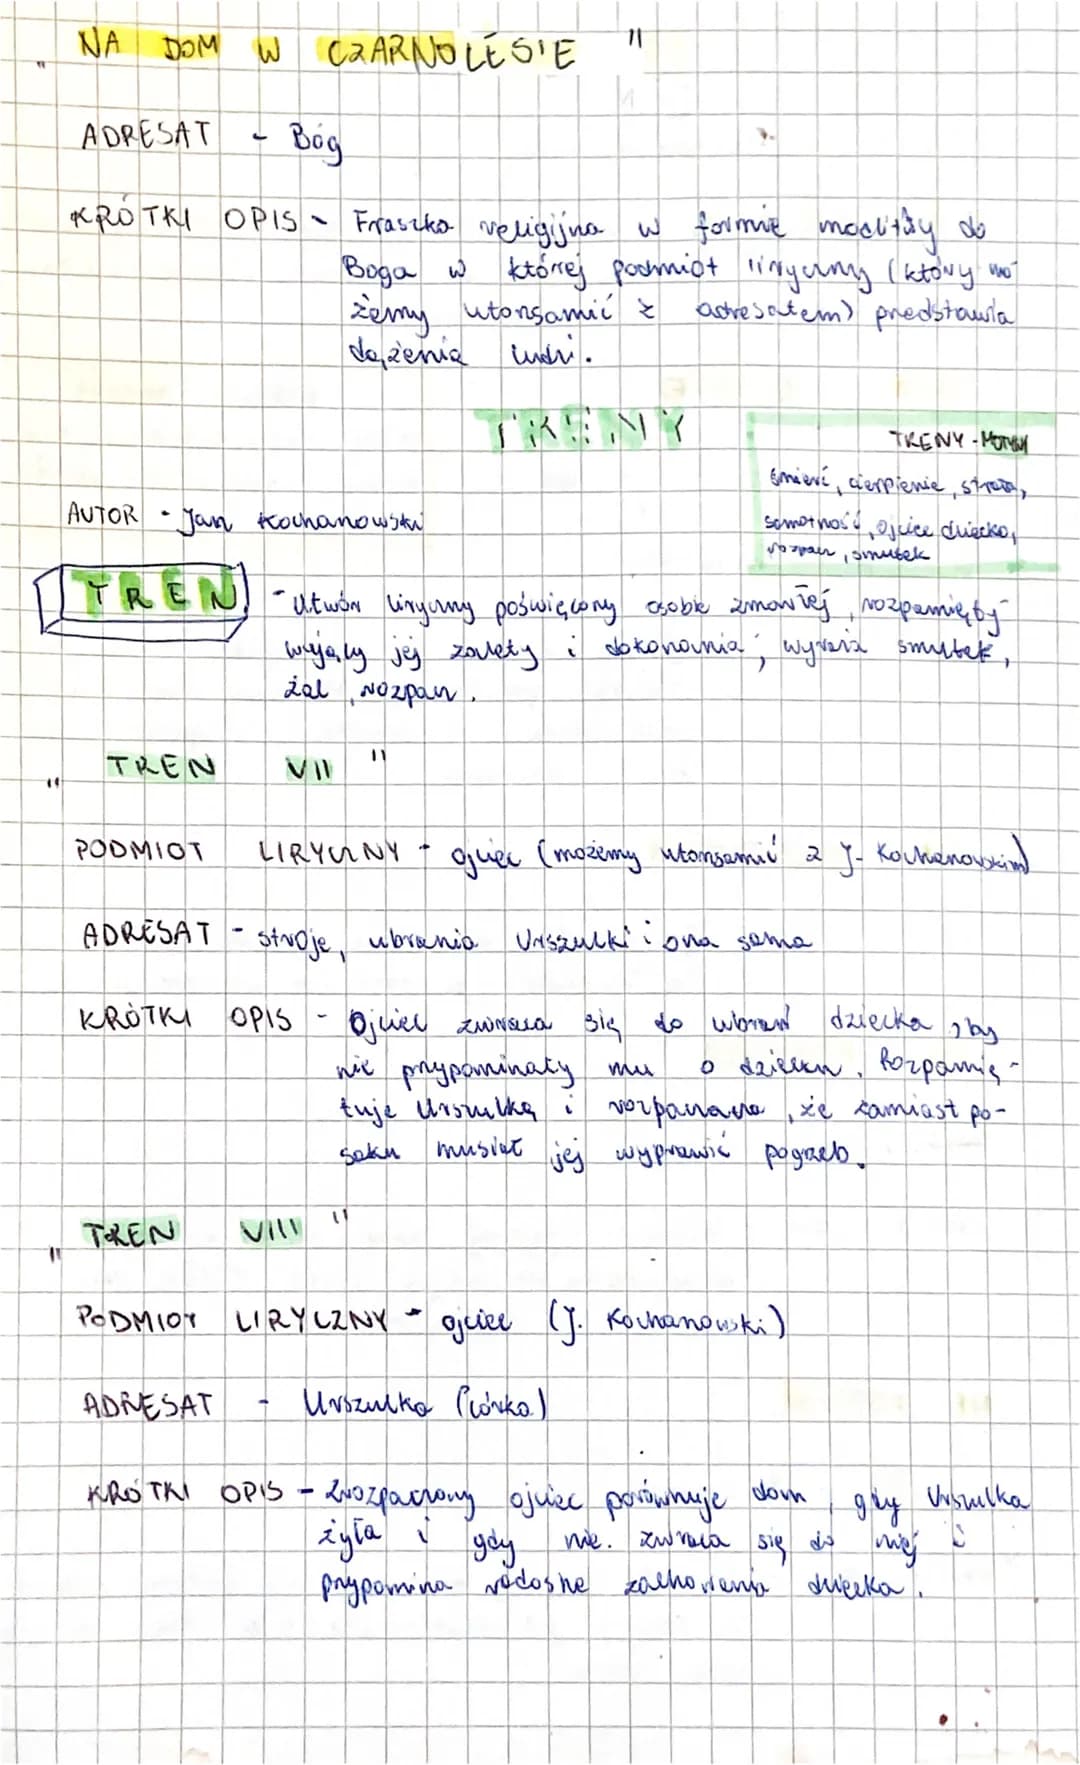 „ NA DOM W CZARNOLESIE "
ADRESAT - Bóg
KRÓTKI OPIS - Fraszka religijna w formie modlitwy do
Boga w której podmiot liryczny (który mo-
żemy utorsamić z adresatem) predstawia
dążenia ludzi.
TRENY
TRENY - MOTYWY
śmierć, cierpienie, strata,
samotność, ojciec dziecko,
rozpacz, smutek
AUTOR - Jan Kochanowski
TREN - Utwór liryczny poświęcony osobie zmarłej, rozpamięty-
wujący jej zalety i dokonania, wyraża smutek,
żal, rozpacz.
„ TREN VII "
PODMIOT LIRYCZNY - ojciec (możemy utorsamić z J. Kochanowskim)
ADRESAT - stroje, ubrania Urszulki i ona sama
KRÓTKI OPIS - Ojciec zwraca się do ubrań dziecka, by
nie przypominały mu o dziecku. Rozpamię-
tuje Urszulkę i rozpacza, że zamiast po-
sagu musiał jej wyprawić pogrzeb.
„ TREN VIII "
PODMIOT LIRYCZNY - ojciec (J. Kochanowski)
ADRESAT - Urszulka (córka)
KRÓTKI OPIS - Zrozpaczony ojciec porównuje dom, gdy Urszulka
żyła i gdy nie. Zwraca się do niej i
przypomina radosne zachowania dziecka.